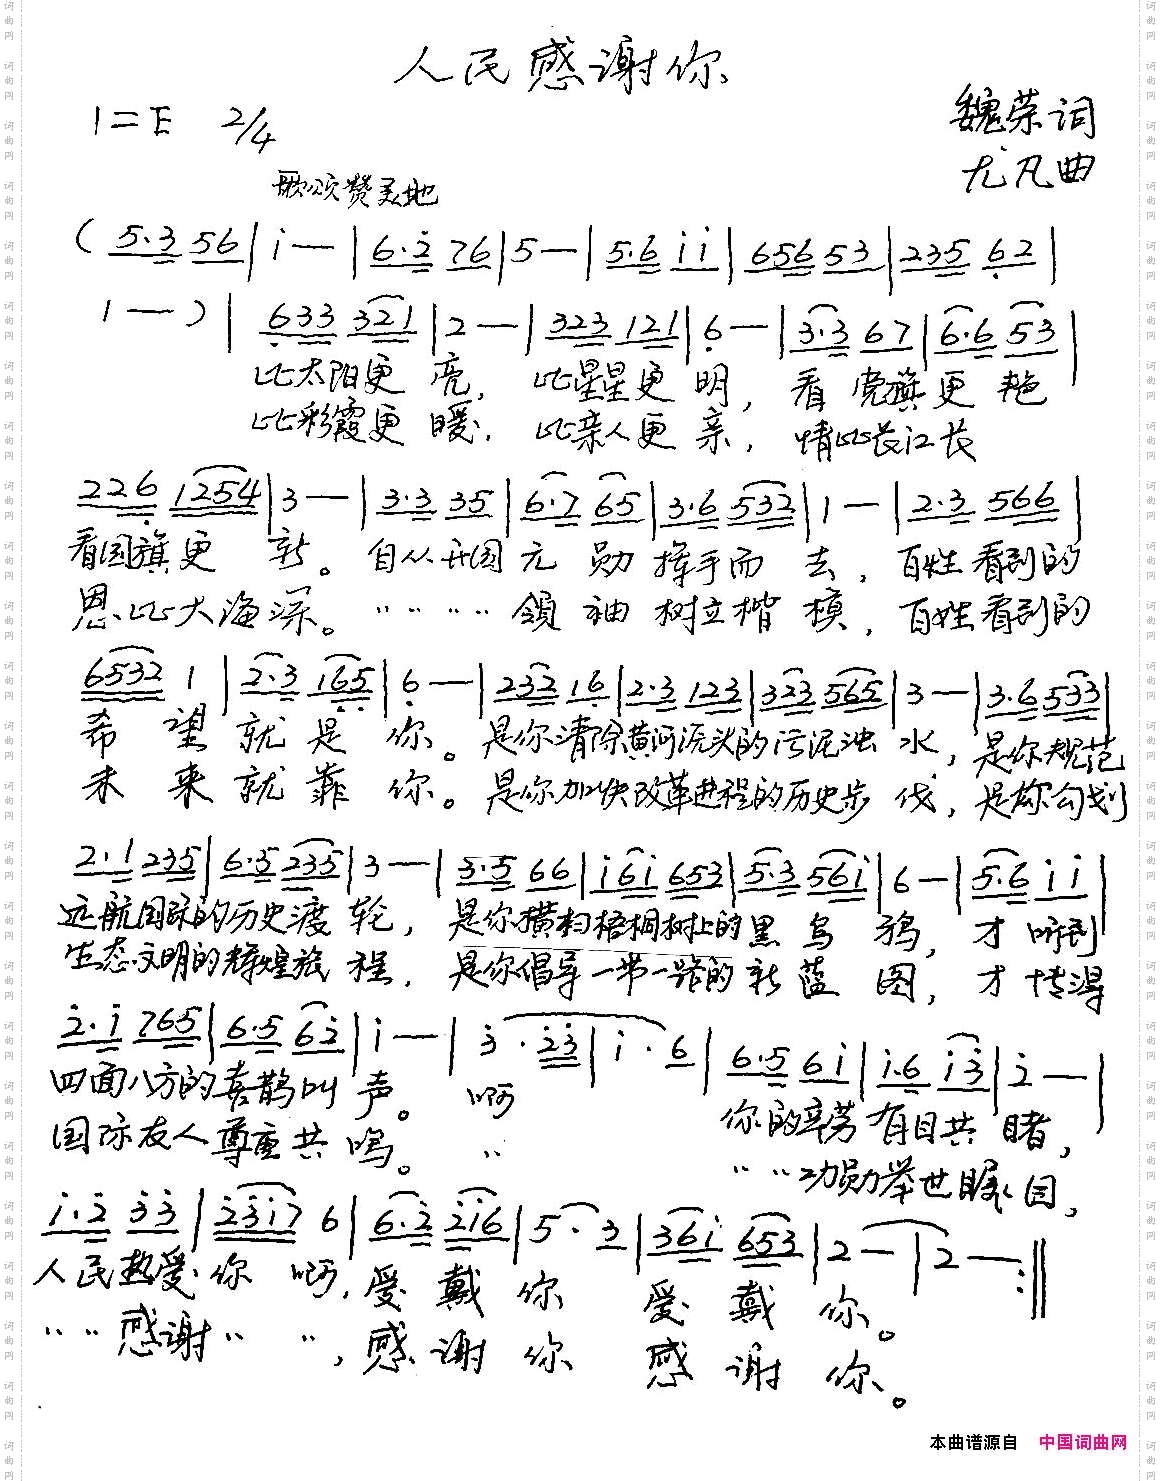 人民感谢你
1=E 2/4
魏荣词
尤凡曲
歌颂赞美地
( 5·3 56 | i — | 6·2 76 | 5 — | 5·6 i i | 656 53 | 235 62 |
1 — ) | 633 321 | 2 — | 323 121 | 6 — | 3·3 67 | 6·6 53 |
比太阳更 亮, 比星星更 明, 看 党旗更 艳
比彩霞更 暖, 比亲人更 亲, 情比长江长
226 1254 | 3 — | 3·3 35 | 6·7 65 | 3·6 532 | 1 — | 2·3 566 |
看国旗更 新。 自从开国 元 勋 挥手而 去, 百姓看到的
恩比大海深。 〃 〃 〃 〃 领 袖 树立楷 模, 百姓看到的
6532 1 | 2·3 165 | 6 — | 232 16 | 2·3 123 | 323 565 | 3 — | 3·6 533 |
希 望 就 是 你。 是你清除黄河源头的污泥浊 水, 是你规范
未 来 就 靠 你。 是你加快改革进程的历史步 伐, 是你勾划
2·1 235 | 6·5 235 | 3 — | 3·5 66 | i6i 653 | 5·3 56i | 6 — | 5·6 i i |
远航国际的历史渡 轮, 是你横扫梧桐树上的黑 乌 鸦, 才 听到
生态文明的辉煌旅 程, 是你倡导一带一路的新 蓝 图, 才 博得
2·i 765 | 6·5 62 | i — | 3·23 | i·6 | 6·5 6i | i·6 i3 | 2 — |
四面八方的喜鹊叫 声。 啊 你的辛劳 有目共 睹,
国际友人尊重共 鸣。 〃 〃 〃功勋举世瞩 目,
i·2 33 | 23i7 6 | 6·2 2i6 | 5·3 | 36i 653 | 2 — | 2 — :‖
人民热爱你 啊, 爱 戴 你 爱 戴 你。
〃 〃 感谢〃 〃, 感 谢 你 感 谢 你。
本曲谱源自 中国词曲网